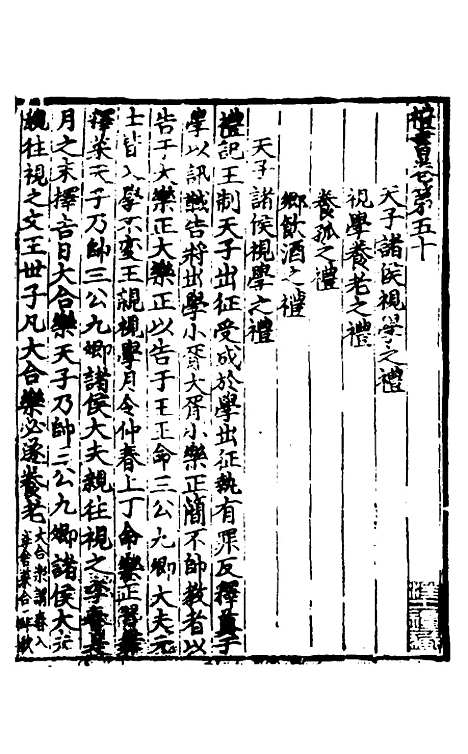 禮書卷第五十
天子諸侯視學之禮
視學養老之禮
養孤之禮
鄉飲酒之禮
天子諸侯視學之禮
禮記王制天子出征受成於學出征執有罪反釋奠于
學以訊馘告將出學小胥大胥小樂正簡不帥教者以
告于大樂正大樂正以告于王王命三公九卿大夫元
士皆入學不變王親視學月令仲春上丁命樂正習舞
釋菜天子乃帥三公九卿諸侯大夫親往視之季春是
月之末擇吉日大合樂天子乃帥三公九卿諸侯大夫
親往視之文王世子凡大合樂必遂養老大合樂謂春入